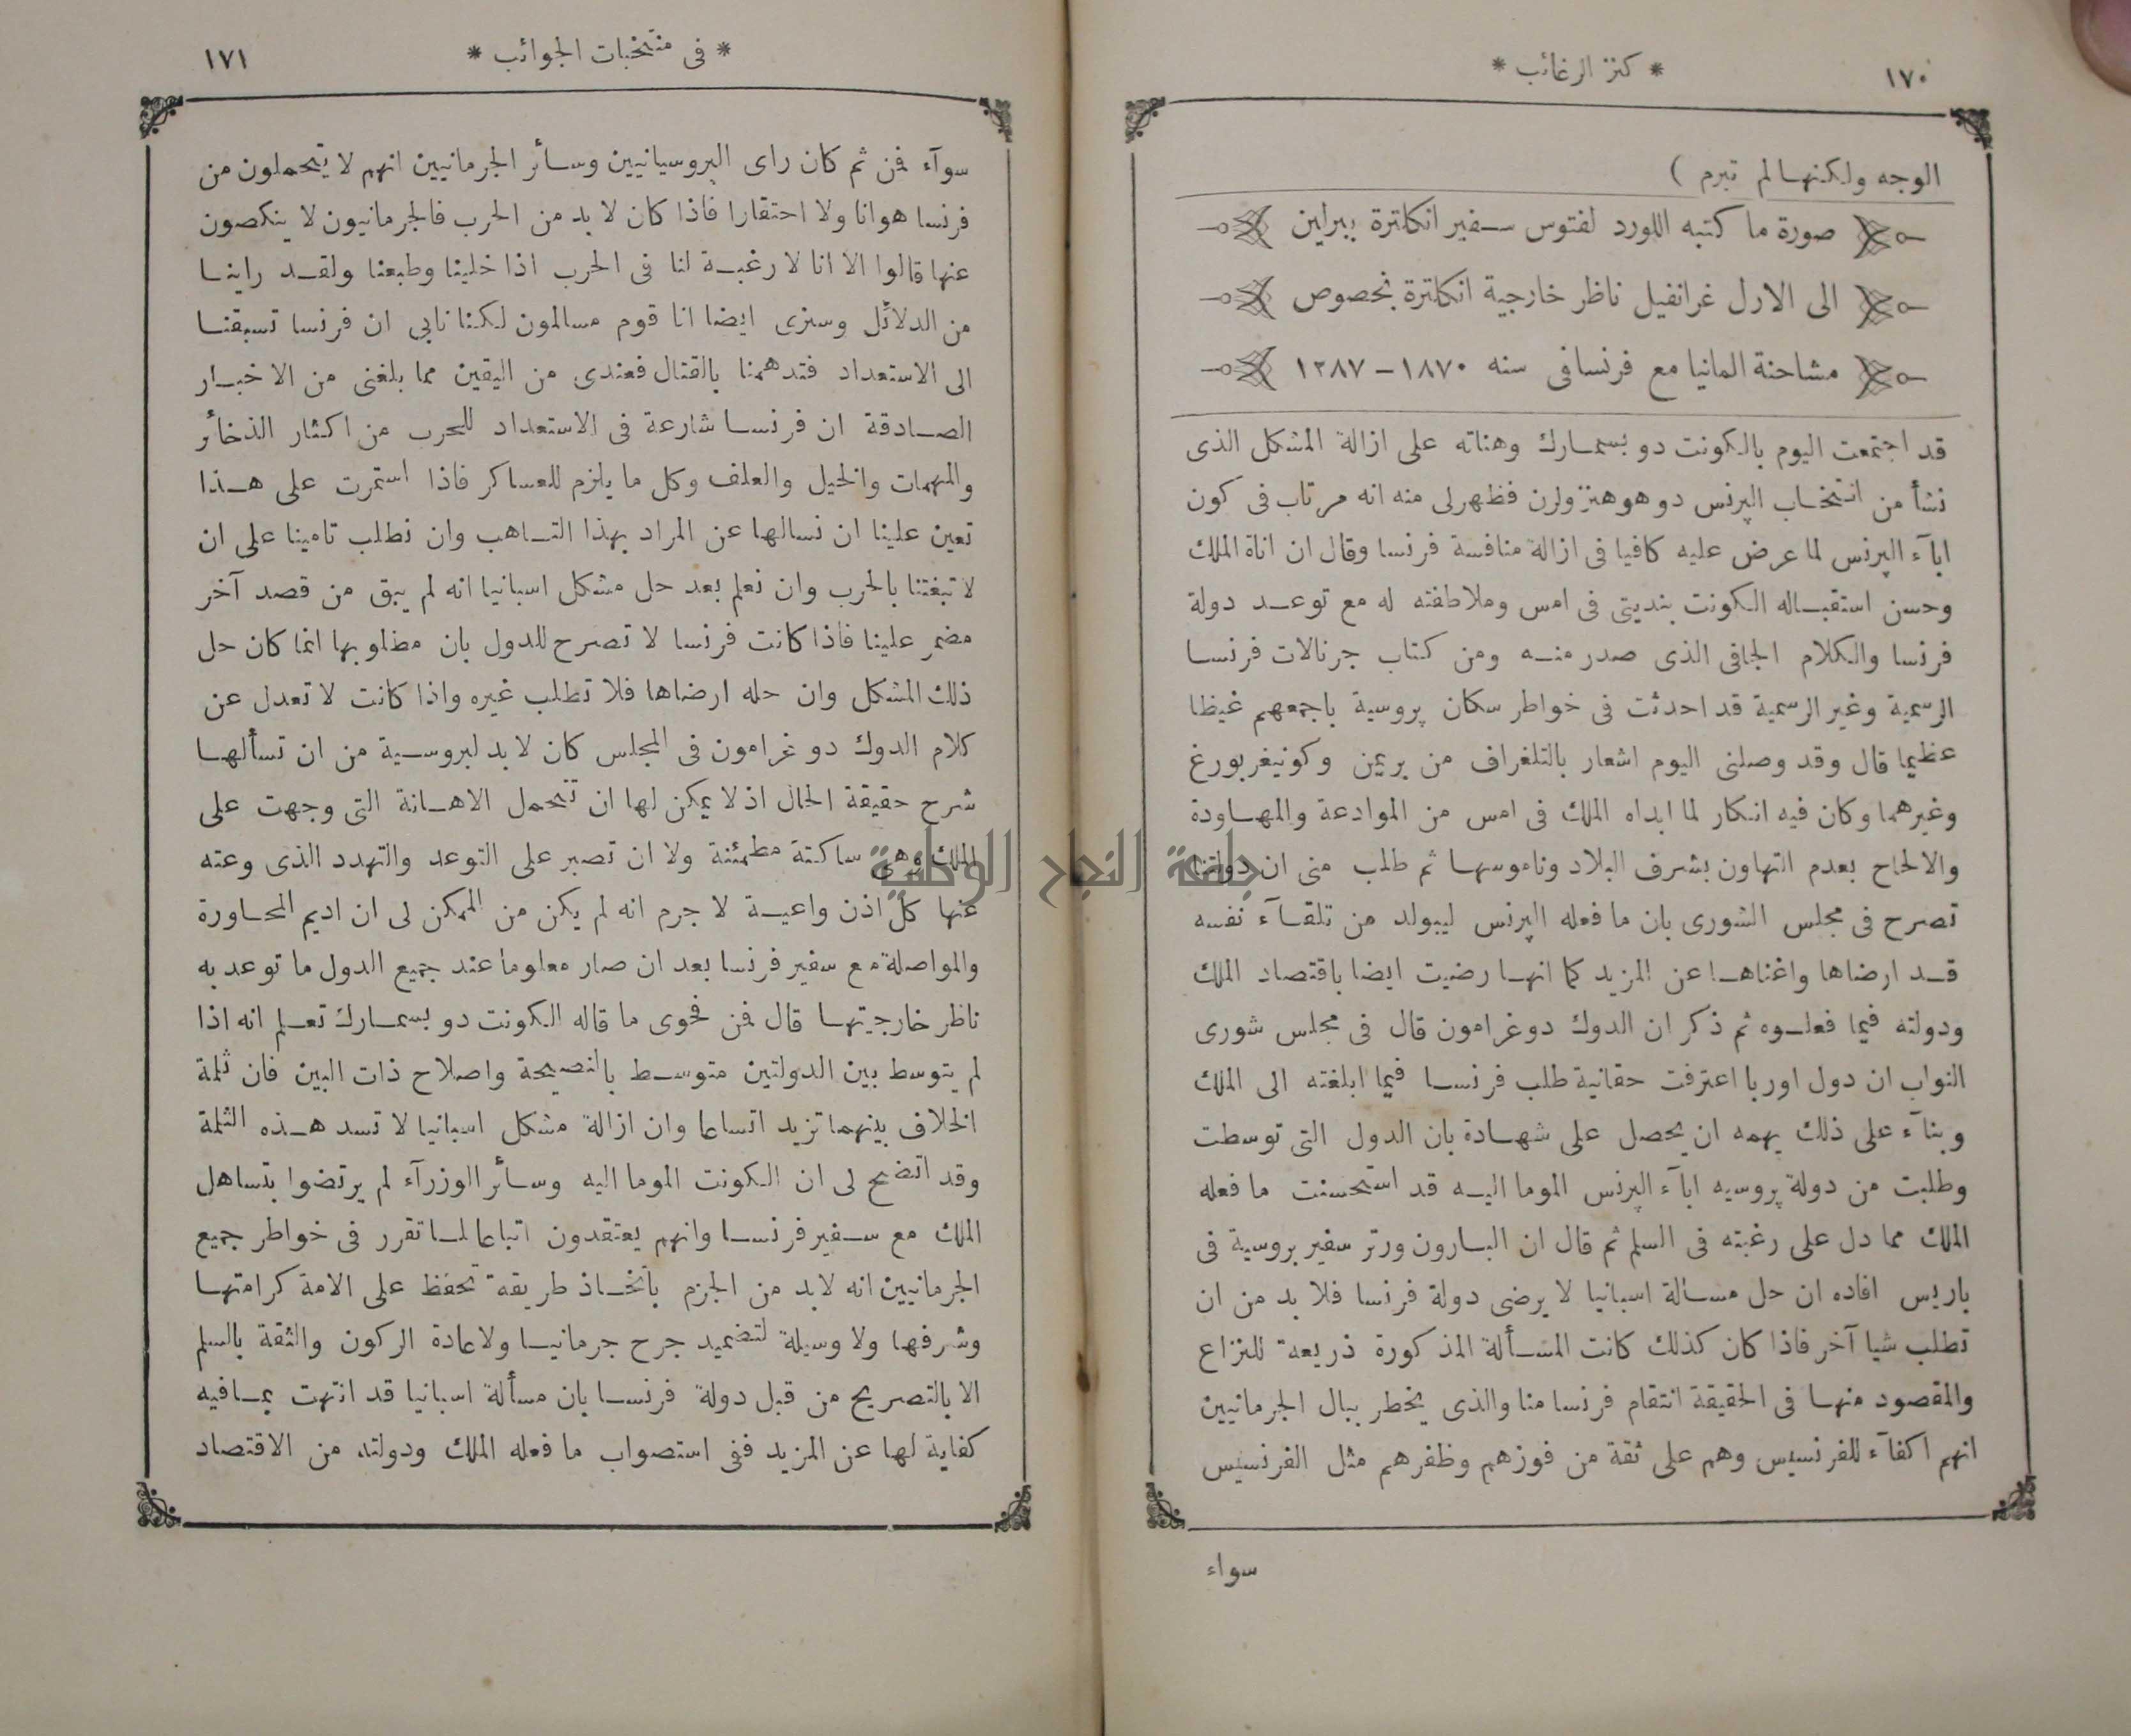 ١٧٠
* كنز الرغائب *
الوجه ولكنها لم تبرم )
صورة ما كتبه اللورد لفتوس سفير انكلترة ببرلين
الى الارل غرانفيل ناظر خارجية انكلترة بخصوص
مشاحنة المانيا مع فرنسا فى سنه ١٨٧٠ – ١٢٨٧
قد اجتمعت اليوم بالكونت دو بسمارك وهناته على ازالة المشكل الذى
نشأ من انتخاب البرنس دو هوهنزولرن فظهر لى منه انه مرتاب فى كون
ابآء البرنس لما عرض عليه كافيا فى ازالة منافسة فرنسا وقال ان اناة الملك
وحسن استقباله الكونت بنديتى فى امس وملاطفته له مع توعد دولة
فرنسا والكلام الجافى الذى صدر منه ومن كتاب جرنالات فرنسا
الرسمية وغير الرسمية قد احدثت فى خواطر سكان پروسية باجمعهم غيظا
عظيما قال وقد وصلنى اليوم اشعار بالتلغراف من بريمن وكونيغربورغ
وغيرهما وكان فيه انكار لما ابداه الملك فى امس من الموادعة والمهاودة
والالحاح بعدم التهاون بشرف البلاد وناموسها ثم طلب منى ان دولتنا
تصرح فى مجلس الشورى بان ما فعله البرنس ليبولد من تلقآء نفسه
قد ارضاها واغناها عن المزيد كما انها رضيت ايضا باقتصاد الملك
ودولته فيما فعلوه ثم ذكر ان الدوك دو غرامون قال فى مجلس شورى
النواب ان دول اوربا اعترفت حقانية طلب فرنسا فيما ابلغته الى الملك
وبنآء على ذلك يهمه ان يحصل على شهادة بان الدول التى توسطت
وطلبت من دولة پروسيه ابآء البرنس الموما اليه قد استحسنت ما فعله
الملك مما دل على رغبته فى السلم ثم قال ان البارون ورتر سفير بروسية فى
باريس افاده ان حل مسالة اسبانيا لا يرضى دولة فرنسا فلا بد من ان
تطلب شيا آخر فاذا كان كذلك كانت المسألة المذكورة ذريعة للنزاع
والمقصود منها فى الحقيقة انتقام فرنسا منا والذى يخطر ببال الجرمانيين
انهم اكفآء للفرنسيس وهم على ثقة من فوزهم وظفرهم مثل الفرنسيس
سواء
* فى منتخبات الجوائب *
١٧١
سوآء فمن ثم كان راى البروسيانيين وسائر الجرمانيين انهم لا يتحملون من
فرنسا هوانا ولا احتقارا فاذا كان لا بد من الحرب فالجرمانيون لا ينكصون
عنها قالوا الا انا لا رغبة لنا فى الحرب اذا خلينا وطبعنا ولقد راينا
من الدلائل وسنرى ايضا انا قوم مسالمون لكننا نابى ان فرنسا تسبقنا
الى الاستعداد فتدهمنا بالقتال فعندى من اليقين مما بلغنى من الاخبار
الصادقة ان فرنسا شارعة فى الاستعداد للحرب من اكثار الذخائر
والمهمات والخيل والعلف وكل ما يلزم للعساكر فاذا استمرت على هذا
تعين علينا ان نسالها عن المراد بهذا التاهب وان نطلب تامينا على ان
لا تبغتنا بالحرب وان نعلم بعد حل مشكل اسبانيا انه لم يبق من قصد آخر
مضمر علينا فاذا كانت فرنسا لا تصرح للدول بان مطلوبها انما كان حل
ذلك المشكل وان حله ارضاها فلا تطلب غيره واذا كانت لا تعدل عن
كلام الدوك دو غرامون فى المجلس كان لا بد لبروسية من ان تسألها
شرح حقيقة الحال اذ لا يمكن لها ان تتحمل الاهانة التى وجهت على
الملك وهى ساكتة مطمئنة ولا ان تصبر على التوعد والتهدد الذى وعته
عنها كل اذن واعية لا جرم انه لم يكن من الممكن لى ان اديم المحاورة
والمواصلة مع سفير فرنسا بعد ان صار معلوما عند جميع الدول ما توعد به
ناظر خارجيتها قال فمن فحوى ما قاله الكونت دو بسمارك تعلم انه اذا
لم يتوسط بين الدولتين متوسط بالنصيحة واصلاح ذات البين فان ثلمة
الخلاف بينهما تزيد اتساعا وان ازالة مشكل اسبانيا لا تسد هذه الثلمة
وقد اتضح لى ان الكونت الموما اليه وسائر الوزرآء لم يرتضوا بتساهل
الملك مع سفير فرنسا وانهم يعتقدون اتباعا لما تقرر فى خواطر جميع
الجرمانيين انه لا بد من الجزم باتخاذ طريقة تحفظ على الامة كرامتها
وشرفها ولا وسيلة لتضميد جرح جرمانيا ولاعادة الركون والثقة بالسلم
الا بالتصريح من قبل دولة فرنسا بان مسألة اسبانيا قد انتهت بما فيه
كفاية لها عن المزيد ففى استصواب ما فعله الملك ودولته من الاقتصاد
جامعة النجاح الوطنية